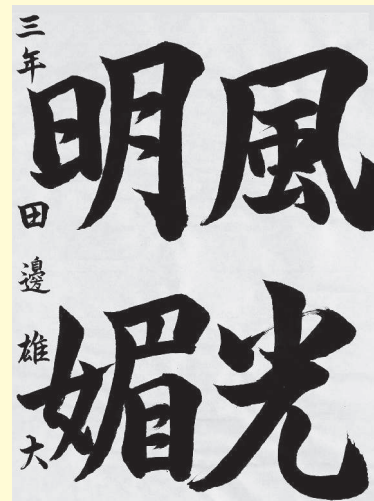 風光
明媚
三年 田邊雄大